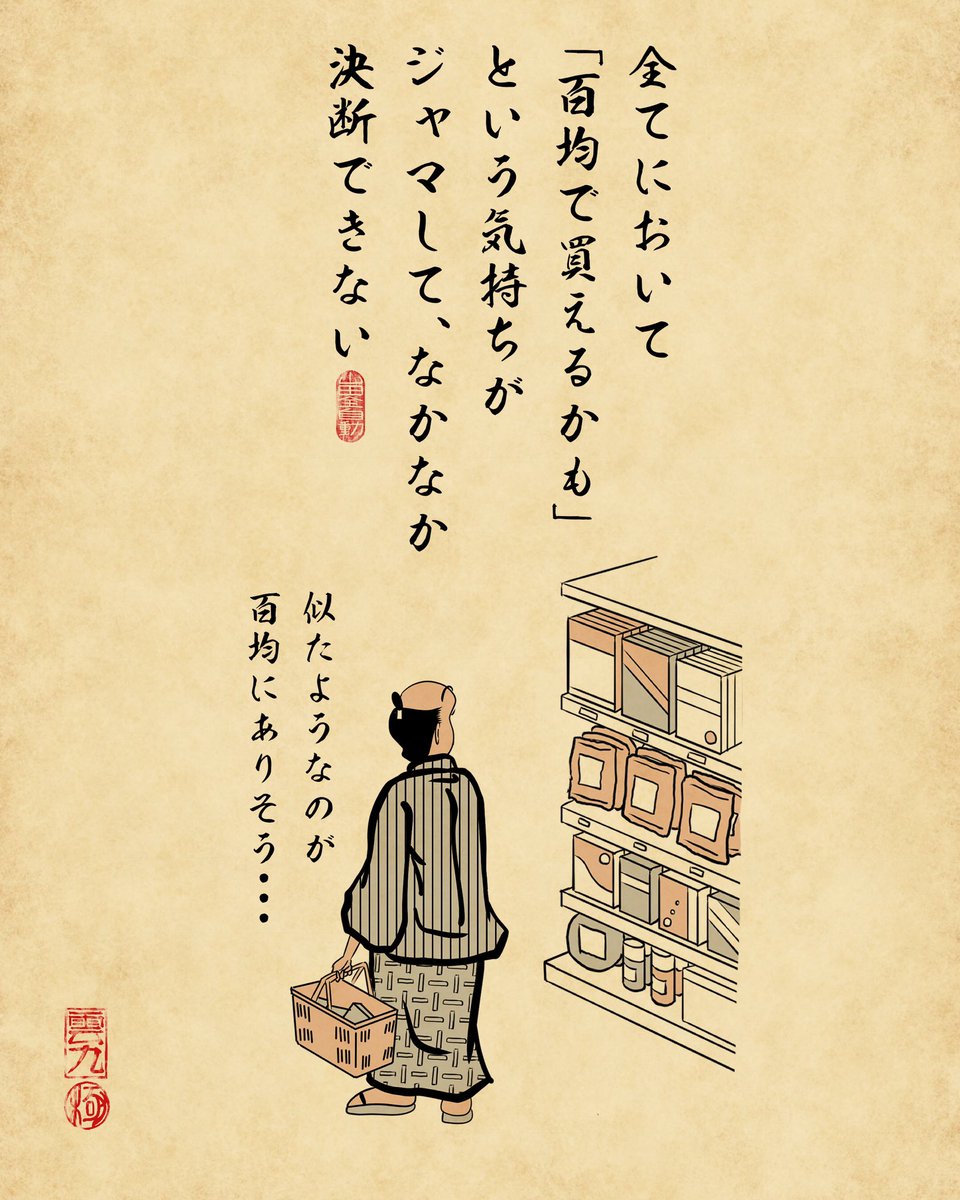 全てにおいて
「百均で買えるかも」
という気持ちが
ジャマして、なかなか
決断できない
似たようなのが
百均にありそう・・・